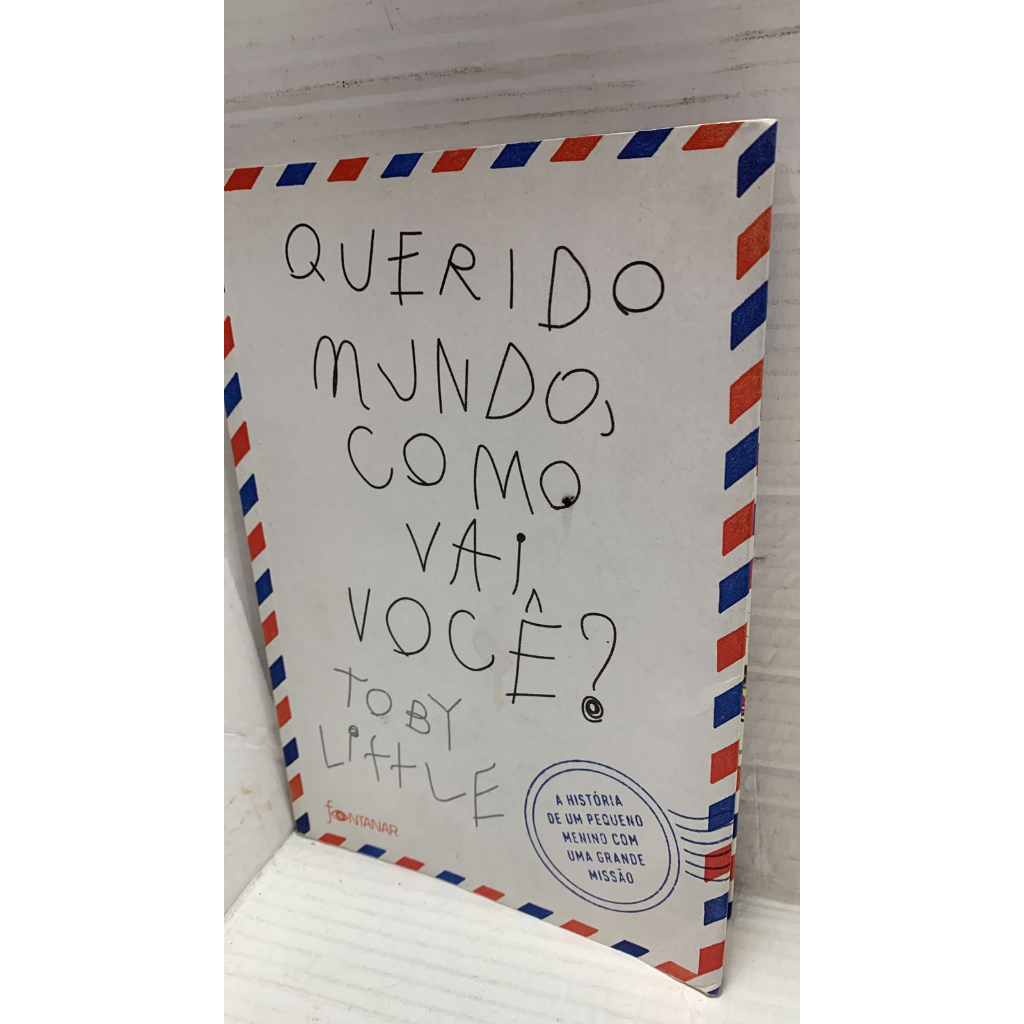 QUERIDO
MUNDO,
COMO
VAI
VOCÊ?
TOBY
LittLE
fONTANAR
A HISTÓRIA
DE UM PEQUENO
MENINO COM
UMA GRANDE
MISSÃO